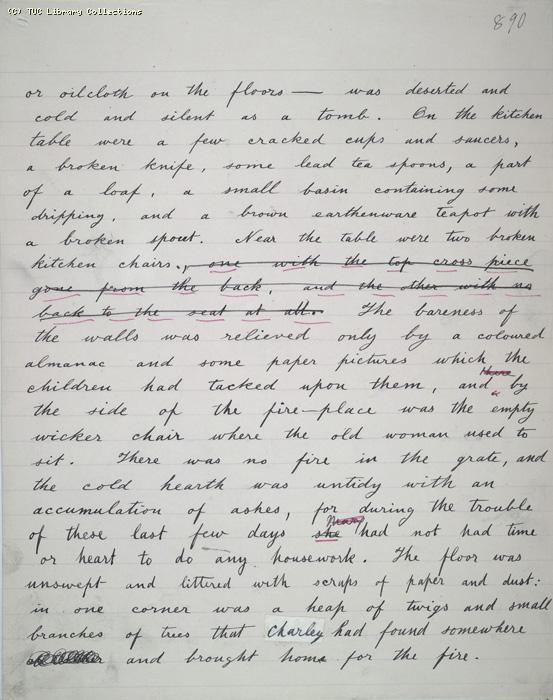 (C) TUC Library Collections
890
or oilcloth on the floors — was deserted and
cold and silent as a tomb. On the kitchen
table were a few cracked cups and saucers,
a broken knife, some lead tea spoons, a part
of a loaf, a small basin containing some
dripping, and a brown earthenware teapot with
a broken spout. Near the table were two broken
kitchen chairs, one with the top cross piece
gone from the back, and the other with no
back to the seat at all. The bareness of
the walls was relieved only by a coloured
almanac and some paper pictures which the
children had tacked upon them, and by
the side of the fire-place was the empty
wicker chair where the old woman used to
sit. There was no fire in the grate, and
the cold hearth was untidy with an
accumulation of ashes, for during the trouble
Mary
of these last few days she had not had time
or heart to do any housework. The floor was
unswept and littered with scraps of paper and dust:
in one corner was a heap of twigs and small
branches of trees that Charley had found somewhere
and brought home for the fire.